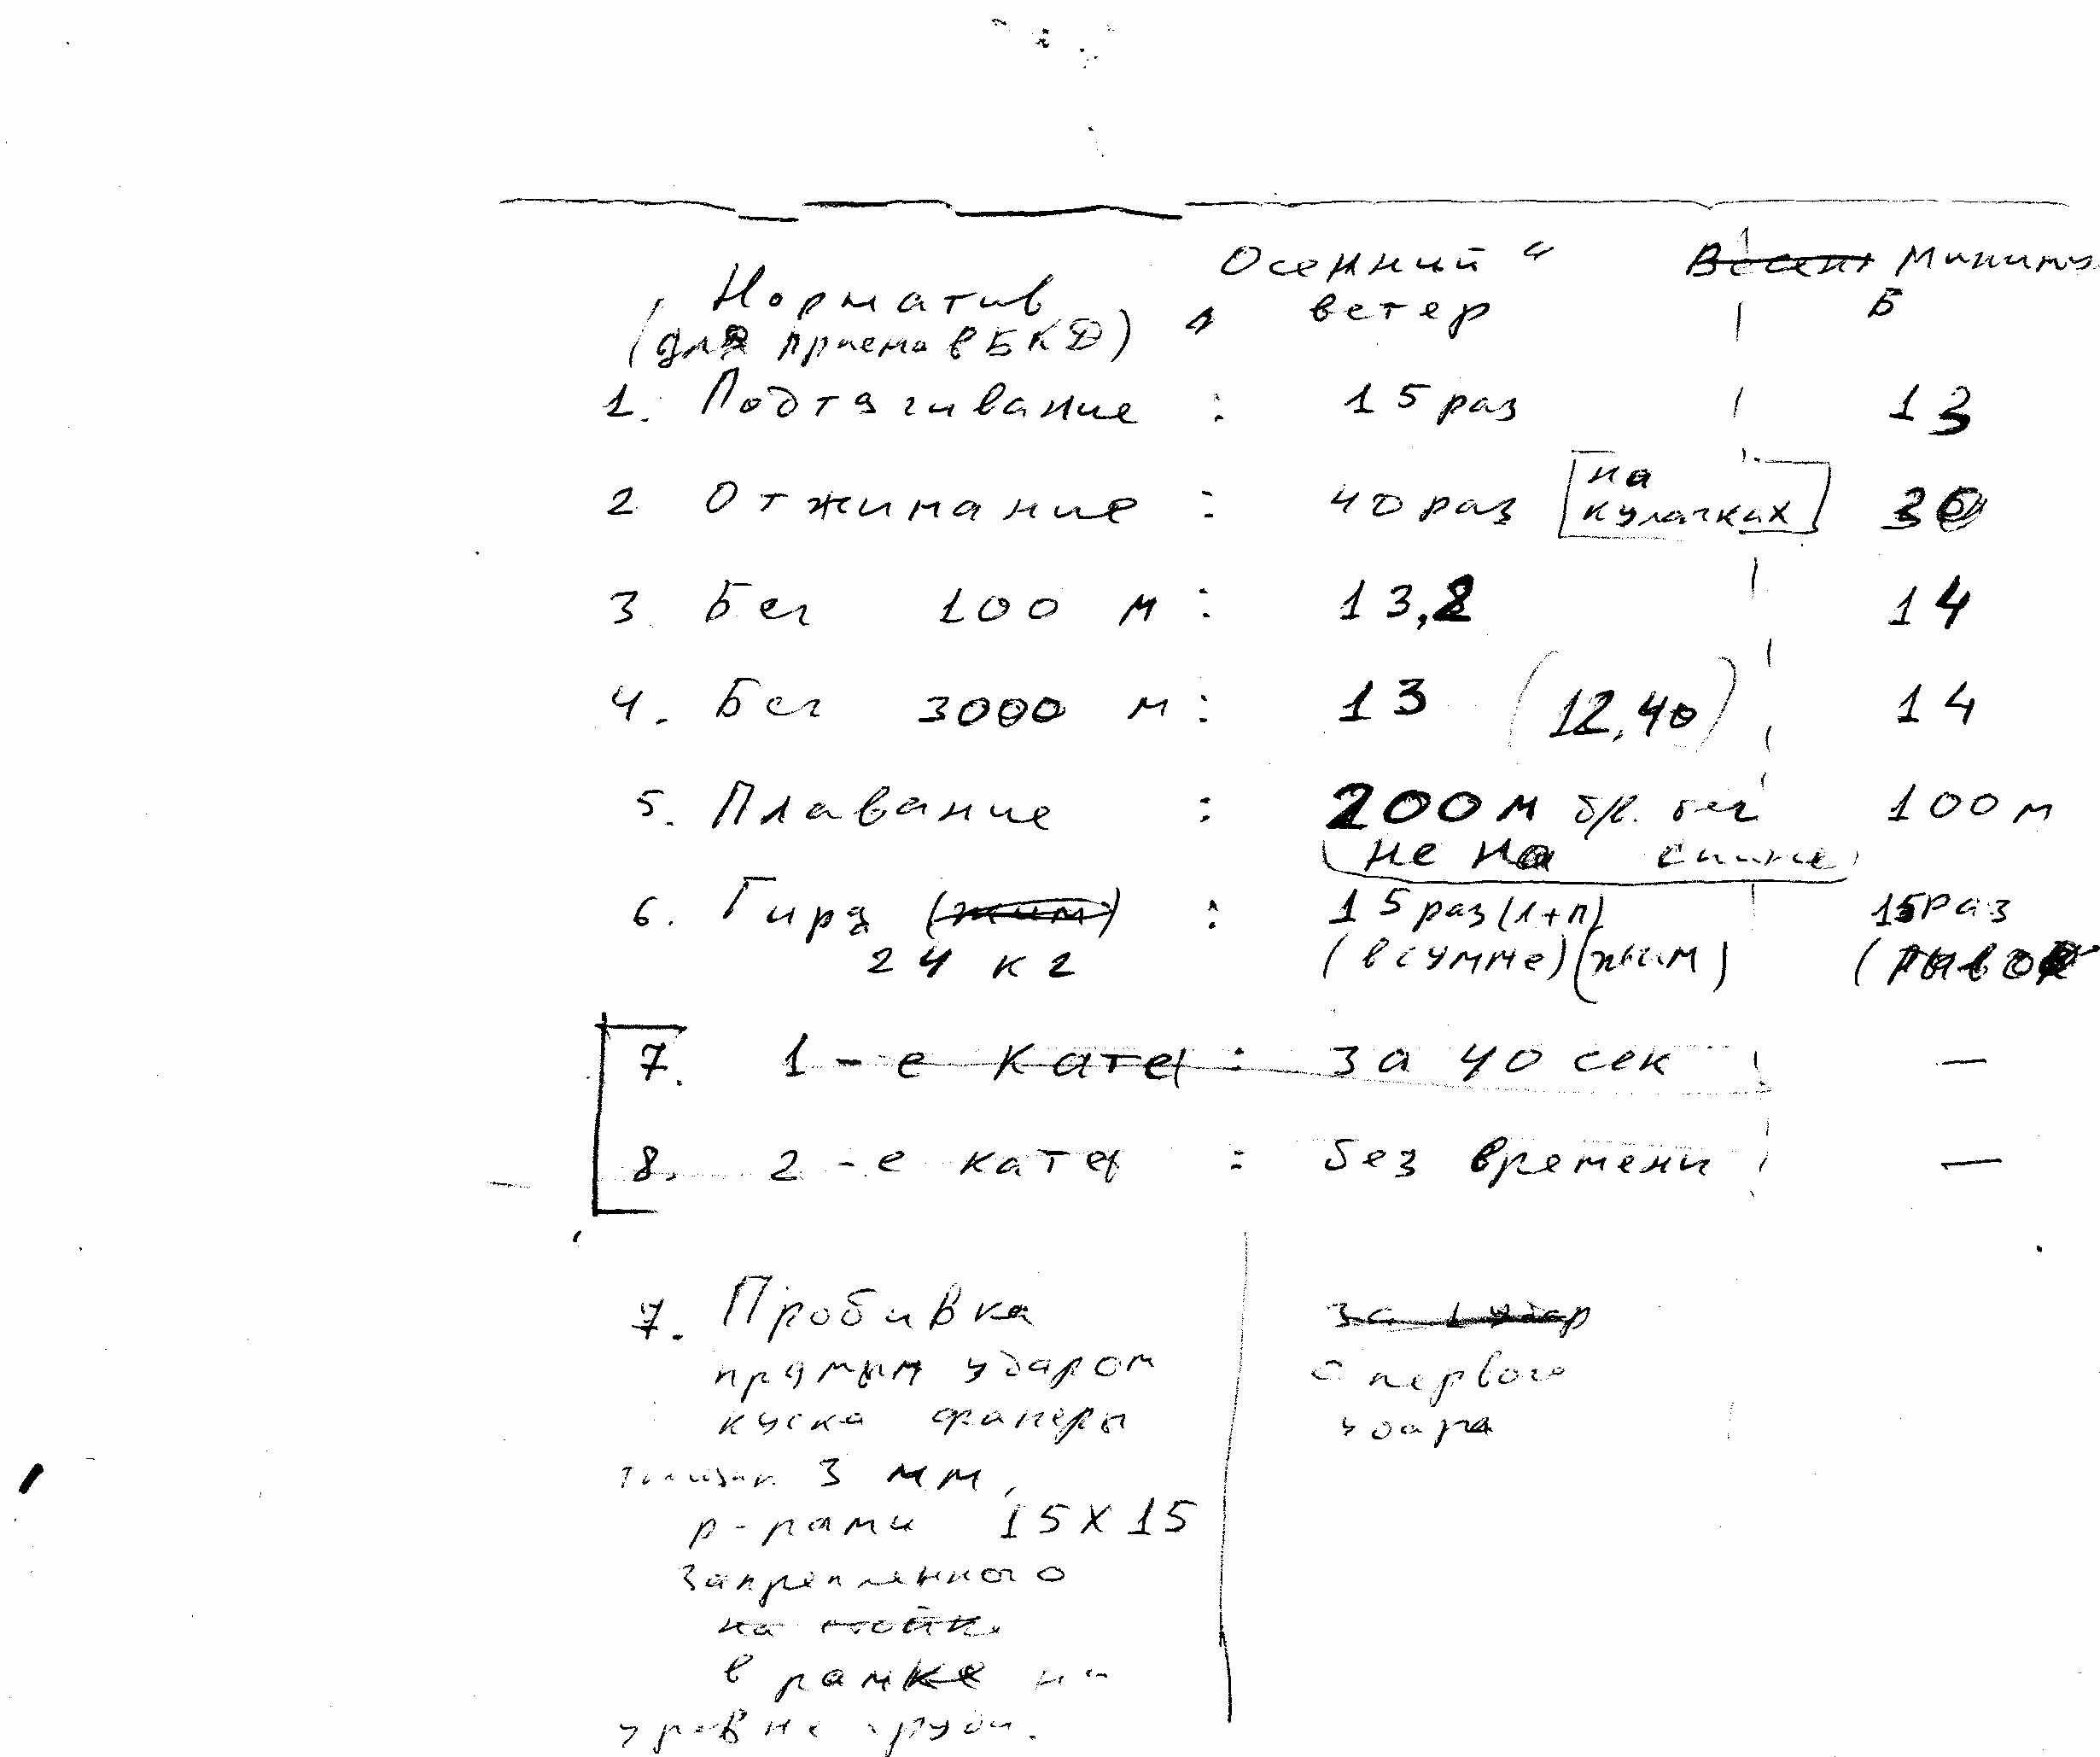 Осенний " Миниму
Норматив " ветер Б
(для приема в БКД)
1. Подтягивание : 15 раз 13
2 Отжимание : 40 раз [на кулачках] 30
3. Бег 100 м : 13,2 14
4. Бег 3000 м : 13 (12,40) 14
5. Плавание : 200 м 100 м
не на спине
6. Гиря (жим) : 15 раз (л+п) 15 раз
24 кг (в сумме) (жим) (рывок
7. 1-е Ката : за 40 сек —
8. 2-е ката : без времени —
7. Пробивка за 1 удар
прямым ударом с первого
куска фанеры удара
3 мм,
р-рами 15 х 15
Закрепленного
на
в рамке на
уровне груди.